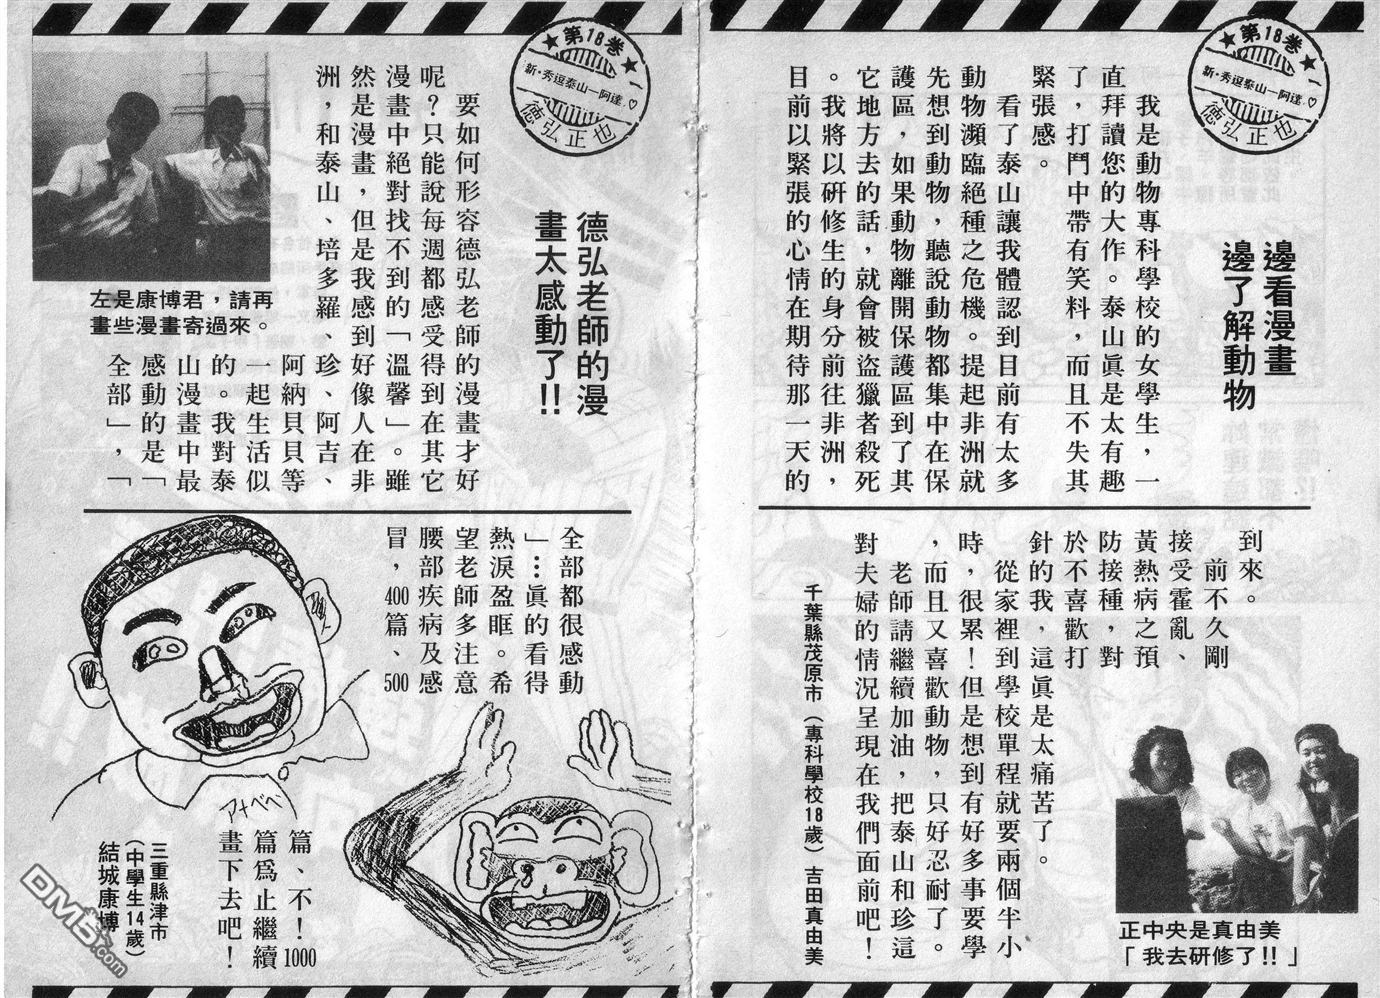 ★第18卷★
新・秀逗泰山—阿達♡
德弘正也
邊看漫畫
邊了解動物
我是動物專科學校的女學生，一
直拜讀您的大作。泰山眞是太有趣
了，打鬥中帶有笑料，而且不失其
緊張感。
看了泰山讓我體認到目前有太多
動物瀕臨絕種之危機。提起非洲就
先想到動物，聽說動物都集中在保
護區，如果動物離開保護區到了其
它地方去的話，就會被盜獵者殺死
。我將以研修生的身分前往非洲，
目前以緊張的心情在期待那一天的
到來。
前不久剛
接受霍亂、
黃熱病之預
防接種，對
於不喜歡打
針的我，這眞是太痛苦了。
從家裡到學校單程就要兩個半小
時，很累！但是想到有好多事要學
，而且又喜歡動物，只好忍耐了。
老師請繼續加油，把泰山和珍這
對夫婦的情況呈現在我們面前吧！
千葉縣茂原市（專科學校18歲）吉田真由美
正中央是真由美
「我去研修了!!」
★第18卷★
新・秀逗泰山—阿達♡
德弘正也
德弘老師的漫
畫太感動了!!
要如何形容德弘老師的漫畫才好
呢？只能說每週都感受得到在其它
漫畫中絕對找不到的「溫馨」。雖
然是漫畫，但是我感到好像人在非
洲，和泰山、培多羅、珍、阿吉、
阿納貝貝等
一起生活似
的。我對泰
山漫畫中最
感動的是「
全部」，「
左是康博君，請再
畫些漫畫寄過來。
全部都很感動
」…眞的看得
熱淚盈眶。希
望老師多注意
腰部疾病及感
冒，400篇、500
篇、不！1000
篇爲止繼續
畫下去吧！
アナベベ
三重縣津市
（中學生14歲）
結城康博
DM5.com